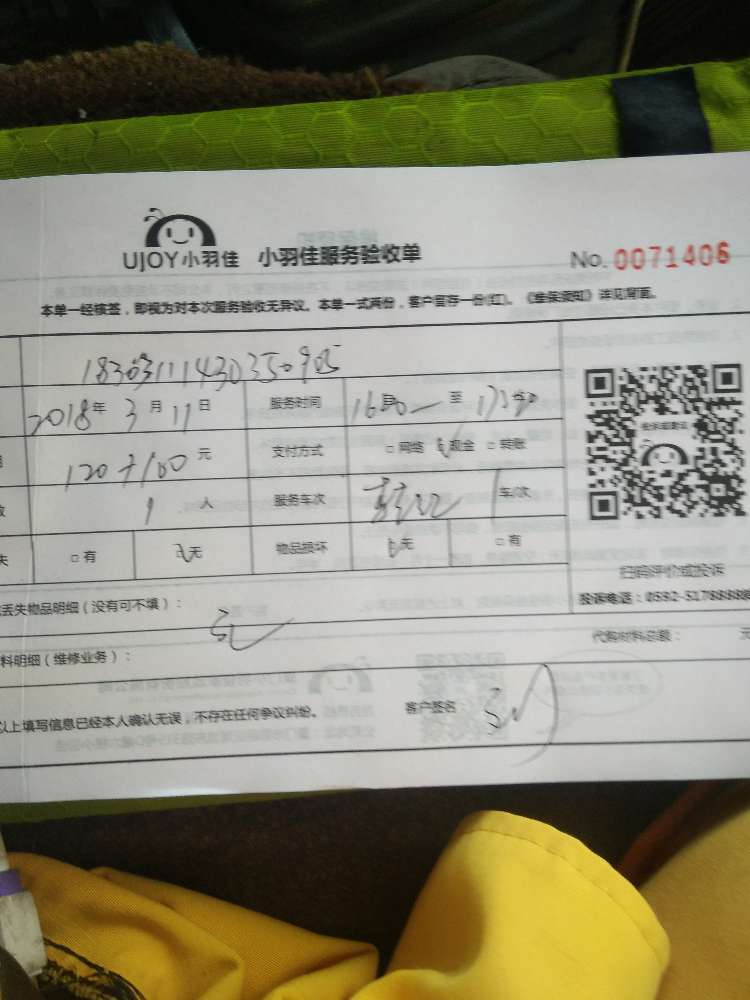 UJOY小羽佳 小羽佳服务验收单 No. 0071406
本单一经核签，即视为对本次服务验收无异议。本单一式两份，客户留存一份(红)。《维保须知》详见背面。
2018年 3月 11日 服务时间 至
120+100 元 支付方式 □网络 现金 □转账
1 人 服务车次 车/次
失 □有 无 物品损坏 无 □有
扫码评价或投诉
丢失物品明细（没有可不填）： 投诉电话：0592-5178888
无
料明细（维修业务）： 代购材料总额： 元
以上填写信息已经本人确认无误，不存在任何争议纠纷。 客户签名